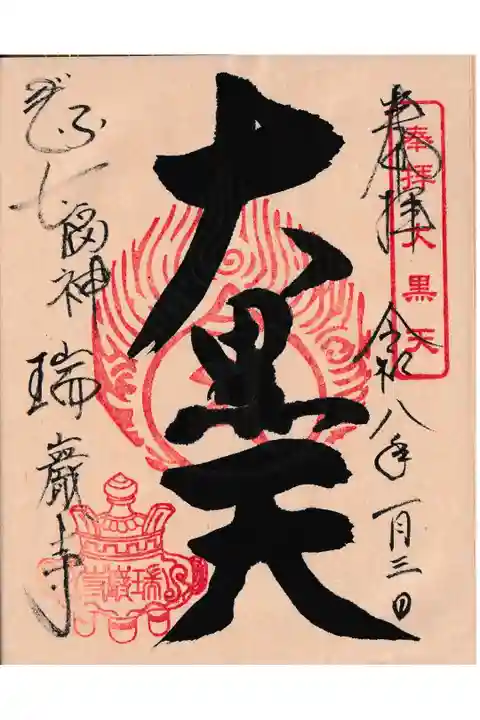 奉拝 令和八年一月三日
奉拝 大黒天
大黒天
ぎふ七福神 瑞巌寺